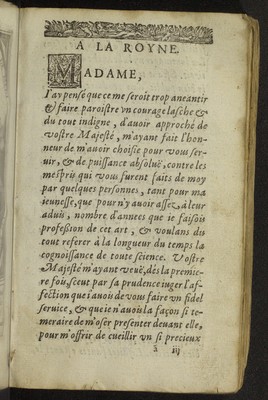 A LA ROYNE.
MADAME,
I'ay pensé que ce me seroit trop aneantir
& faire paroistre vn courage lasche &
du tout indigne, d'auoir approché de
vostre Majesté, m'ayant fait l'hon-
neur de m'auoir choisie pour vous ser-
uir, & de puissance absoluë, contre les
mespris qui vous furent faits de moy
par quelques personnes, tant pour ma
ieunesse, que pour n'y auoir assez, à leur
aduis, nombre d'annees que ie faisois
profession de cet art, & voulans du
tout referer à la longueur du temps la
cognoissance de toute science. Vostre
Majesté m'ayant veuë, dés la premie-
re fois, sceut par sa prudence iuger l'af-
fection que i'auois de vous faire vn fidel
seruice, & que ie n'auois la façon si te-
meraire de m'oser presenter deuant elle,
pour m'offrir de cueillir vn si precieux
ã iij